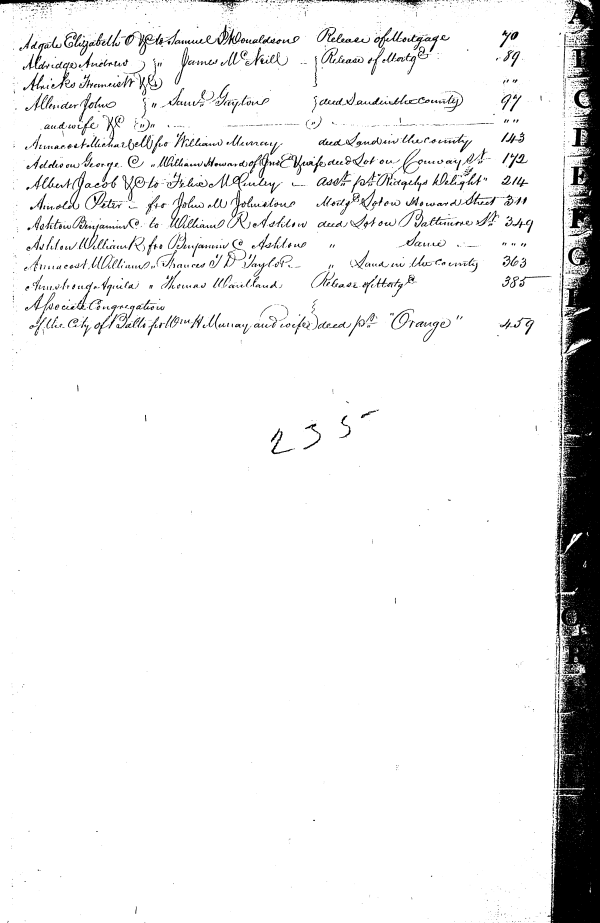 Adgate Elizabeth O &C to Samuel J Donaldson Release of Mortgage 70
Aldridge Andrew } " James McNeill } Release of Mortge 89
Alricks } " "
Allender John } " Saml Guyton } deed Land in the County } 97
and wife &C } " " "
Armacost Michael (of M) fro William Murray deed Land in the County 143
Addison George C " William Howard of Jno E & wife deed Lot on Conway St 172
Albert Jacob &C to Felix McCurley asst pt "Ridgelys Delight" 214
Arnold Peter fro John M Johnstone Mortge Lot on Howard Street 311
Ashton Benjamin C to William R Ashton deed Lot on Baltimore St 349
Ashton William R fro Benjamin C Ashton " Same " " "
Armacost William " Frances T D Taylor " Land in the County 363
Armstrong Aquila " Thomas Wartland Release of Mortge 385
Associate Congregation }
of the City of Balto fro Wm H Murray and wife } deed pt "Orange" 459
235